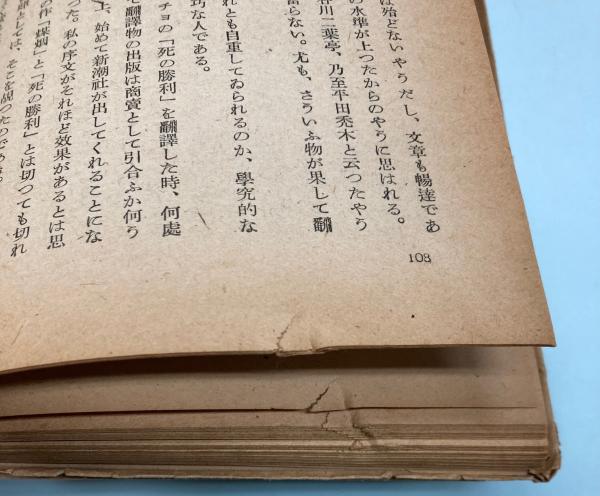 は殆どないやうだし、文章も暢達であ
の水準が上つたからのやうに思はれる。
川二葉亭、乃至平田禿木と云つたやう
留らない。尤も、さういふ物が果して飜
れとも自重してゐられるのか、學究的な
巧な人である。
チヨの「死の勝利」を飜譯した時、何處
飜譯物の出版は商賣として引合ふか何う
、始めて新潮社が出してくれることにな
た。私の序文がそれほど效果があるとは思
の作「煤烟」と「死の勝利」とは切つても切れ
としては、そこを覘つたのである。
108